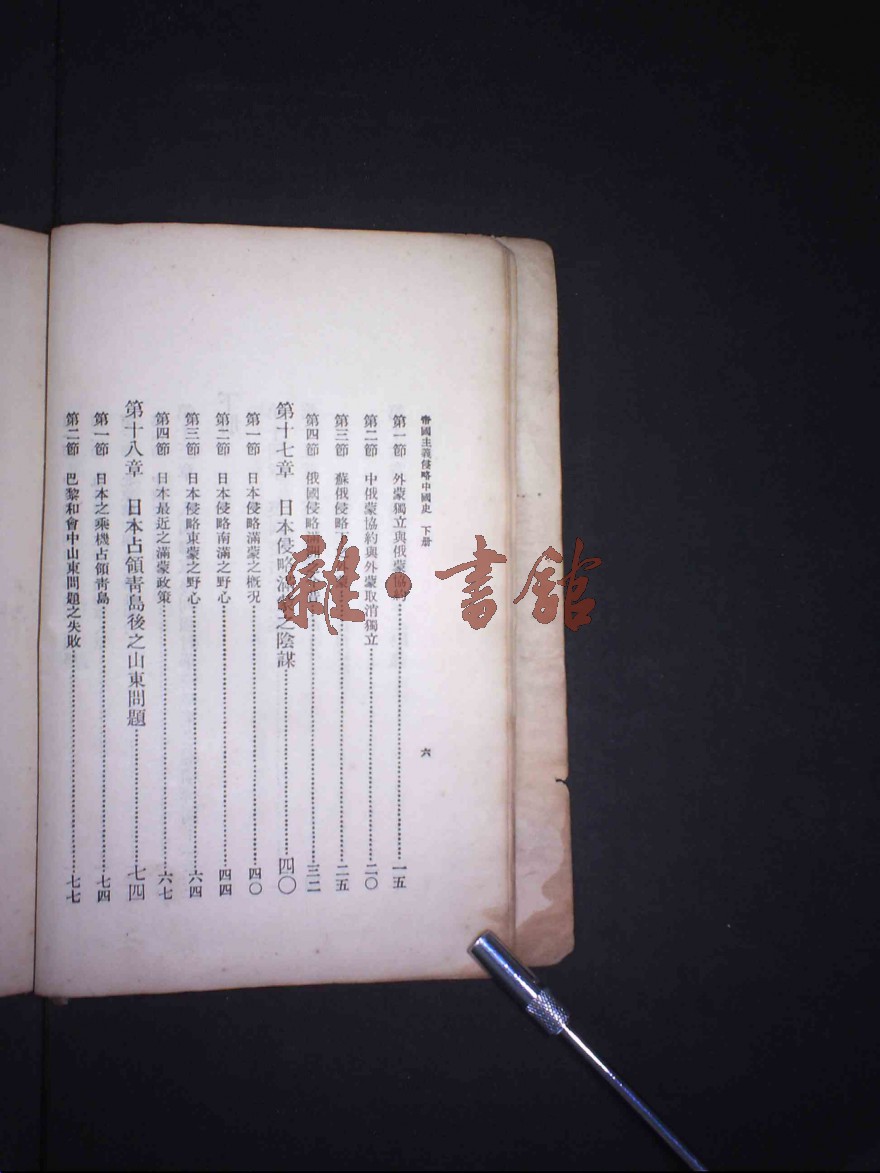 帝國主義侵略中國史 下册
六
第一節 外蒙獨立與俄蒙協約 一五
第二節 中俄蒙協約與外蒙取消獨立 二〇
第三節 蘇俄侵略 二五
第四節 俄國侵略 三二
第十七章 日本侵略滿蒙之陰謀 四〇
第一節 日本侵略滿蒙之概况 四〇
第二節 日本侵略南滿之野心 四四
第三節 日本侵略東蒙之野心 六四
第四節 日本最近之滿蒙政策 六七
第十八章 日本占領靑島後之山東問題 七四
第一節 日本之乘機占領靑島 七四
第二節 巴黎和會中山東問題之失敗 七七
雜·書館